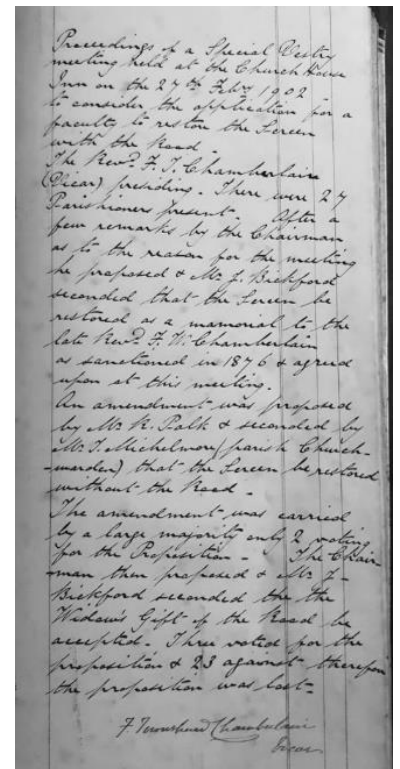 Proceedings of a Special Vestry
meeting held at the Church House
Inn on the 27th Feby 1902
to consider the application for a
faculty to restore the Screen
with the Rood.
The Revd. F. T. Chamberlain
(Vicar) presiding. There were 27
Parishioners present. After a
few remarks by the Chairman
as to the reason for the meeting
he proposed & Mr J. Bickford
seconded that the Screen be
restored as a memorial to the
late Revd. F. W. Chamberlain
as sanctioned in 1876 & agreed
upon at this meeting.
An amendment was proposed
by Mr R. Palk & seconded by
Mr T. Michelmore (parish Church-
-warden) that the Screen be restored
without the Rood.
The amendment was carried
by a large majority only 2 voting
for the Proposition - The Chair-
-man then proposed & Mr J-
Bickford seconded the the
Widow's Gift of the Rood be
accepted. Three voted for the
proposition & 23 against therefore
the proposition was lost-
F Chamberlain
Vicar